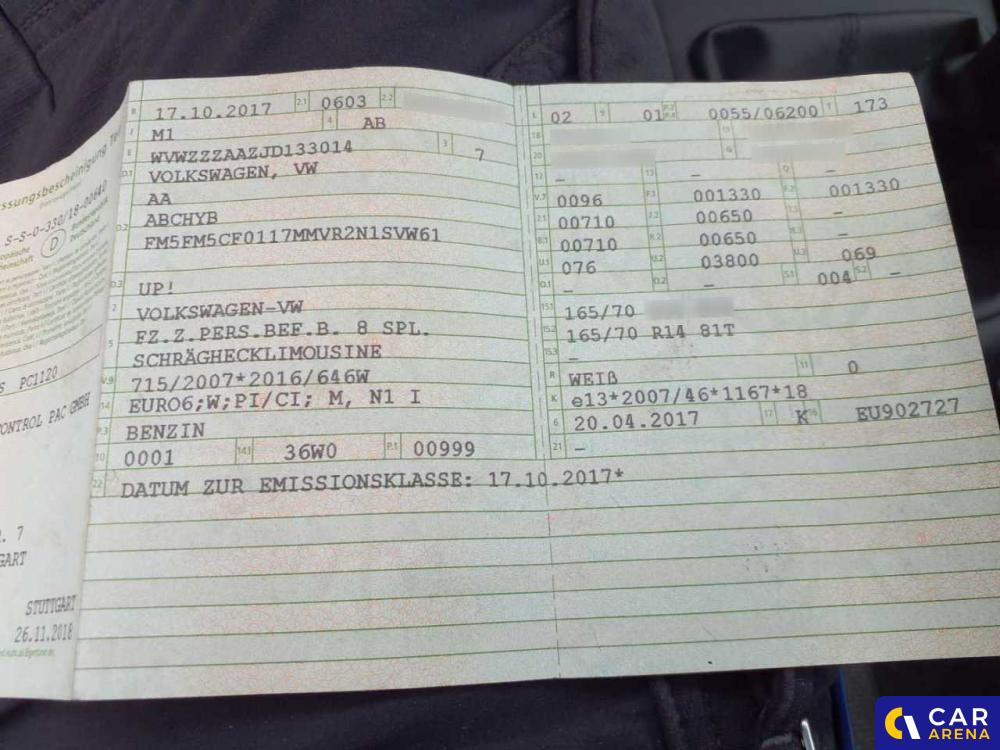 B 17.10.2017 2.1 0603 2.2
J M1 4 AB
E WVWZZZAAZJD133014 3 7
D.1 VOLKSWAGEN, VW
AA
D.2 ABCHYB
FM5FM5CF0117MMVR2N1SVW61
D.3 UP!
2 VOLKSWAGEN-VW
5 FZ.Z.PERS.BEF.B. 8 SPL.
SCHRÄGHECKLIMOUSINE
V.9 715/2007*2016/646W
14 EURO6;W;PI/CI; M, N1 I
P.3 BENZIN
10 0001 14.1 36W0 P.1 00999
22 DATUM ZUR EMISSIONSKLASSE: 17.10.2017*
L 02 9 01 P.2 P.4 0055/06200 T 173
18 19
20 G
12 – 13 – Q –
V.7 0096 F.1 001330 F.2 001330
7.1 00710 7.2 00650 7.3 –
8.1 00710 8.2 00650 8.3 –
U.1 076 U.2 03800 U.3 069
O.1 – O.2 – S.1 004 S.2 –
15.1 165/70
15.2 165/70 R14 81T
15.3 –
R WEIß 11 0
K e13*2007/46*1167*18
6 20.04.2017 17 K 16 EU902727
21 –
S-S-0-330/18-00640
D
PC1120
CONTROL PAC GMBH
7
STUTTGART
26.11.2018
CAR
ARENA